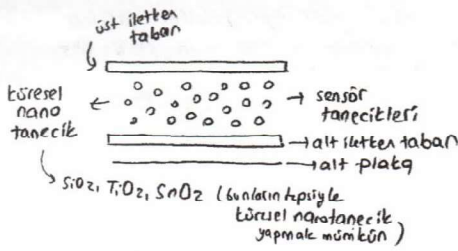 üst iletken
taban
küresel
nano
tanecik
sensör
tanecikleri
alt iletken taban
alt plaka
SiO2, TiO2, SnO2 (bunların hepsiyle
küresel nanotanecik
yapmak mümkün)